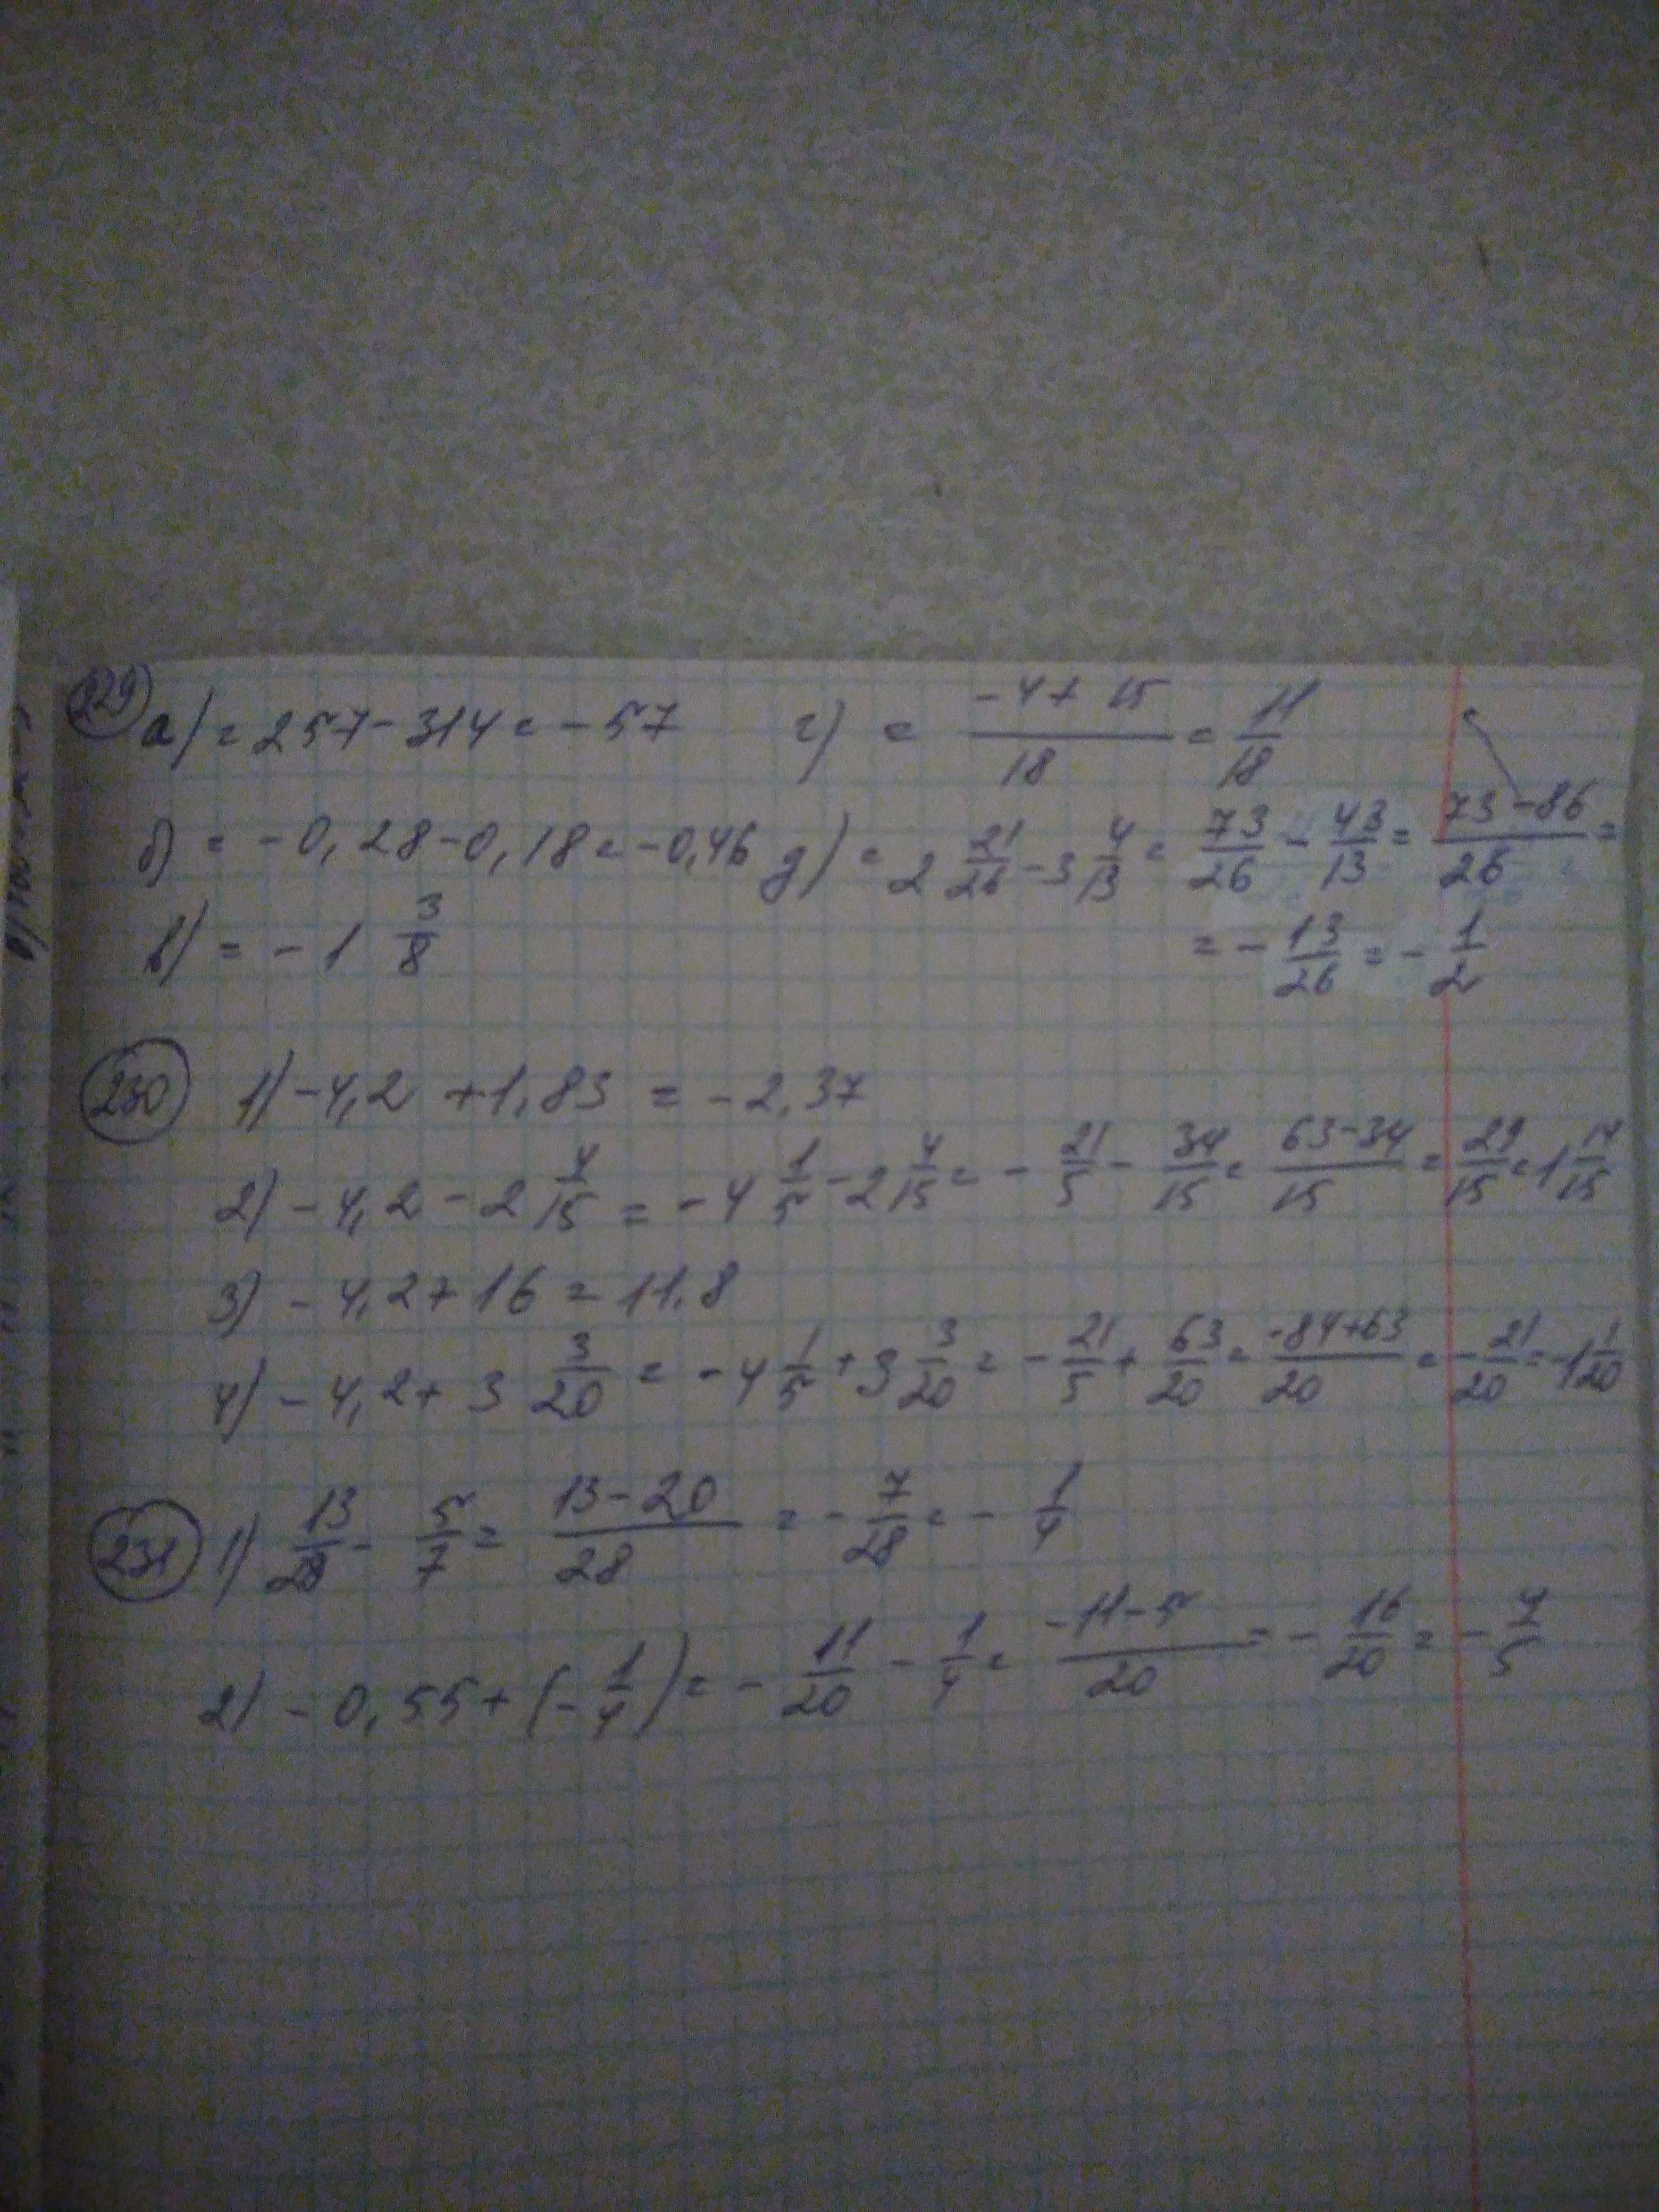 229 а) = 257 - 314 = - 57 г) = (-4 + 15)/18 = 11/18
б) = - 0,28 - 0,18 = - 0,46 д) = 2 21/26 - 3 4/13 = 73/26 - 43/13 = (73 - 86)/26 =
в) = - 1 3/8 = - 13/26 = - 1/2
230 1) - 4,2 + 1,83 = - 2,37
2) - 4,2 - 2 4/15 = - 4 1/5 - 2 4/15 = - 21/5 - 34/15 = (63 - 34)/15 = 29/15 = 1 14/15
3) - 4,2 + 16 = 11,8
4) - 4,2 + 3 3/20 = - 4 1/5 + 3 3/20 = - 21/5 + 63/20 = (-84 + 63)/20 = - 21/20 = - 1 1/20
231 1) 13/28 - 5/7 = (13 - 20)/28 = - 7/28 = - 1/4
2) - 0,55 + (- 1/4) = - 11/20 - 1/4 = (-11 - 5)/20 = - 16/20 = - 4/5